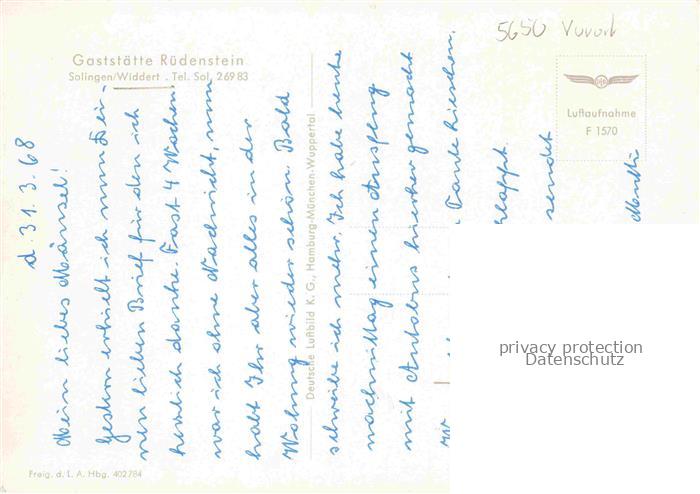 Gaststätte Rüdenstein
Solingen/Widdert . Tel. Sol. 26983
5650 Vorort
Luftaufnahme
F 1570
d. 31.3.68
Mein liebes Mänsel!
Gestern erhielt ich nun Dei-
nen lieben Brief für den ich
herzlich danke. Fast 4 Wochen
war ich ohne Nachricht, nun
habt Ihr aber alles in der
Wohnung wieder schön. Bald
schreibe ich mehr. Ich habe heute
nachmittag einen Ausflug
mit Autobus hierher gemacht
Tante Lieschen.
klappt.
sendet
Mutti
Deutsche Luftbild K. G., Hamburg-München-Wuppertal
Freig. d. L. A. Hbg. 402784
privacy protection
Datenschutz